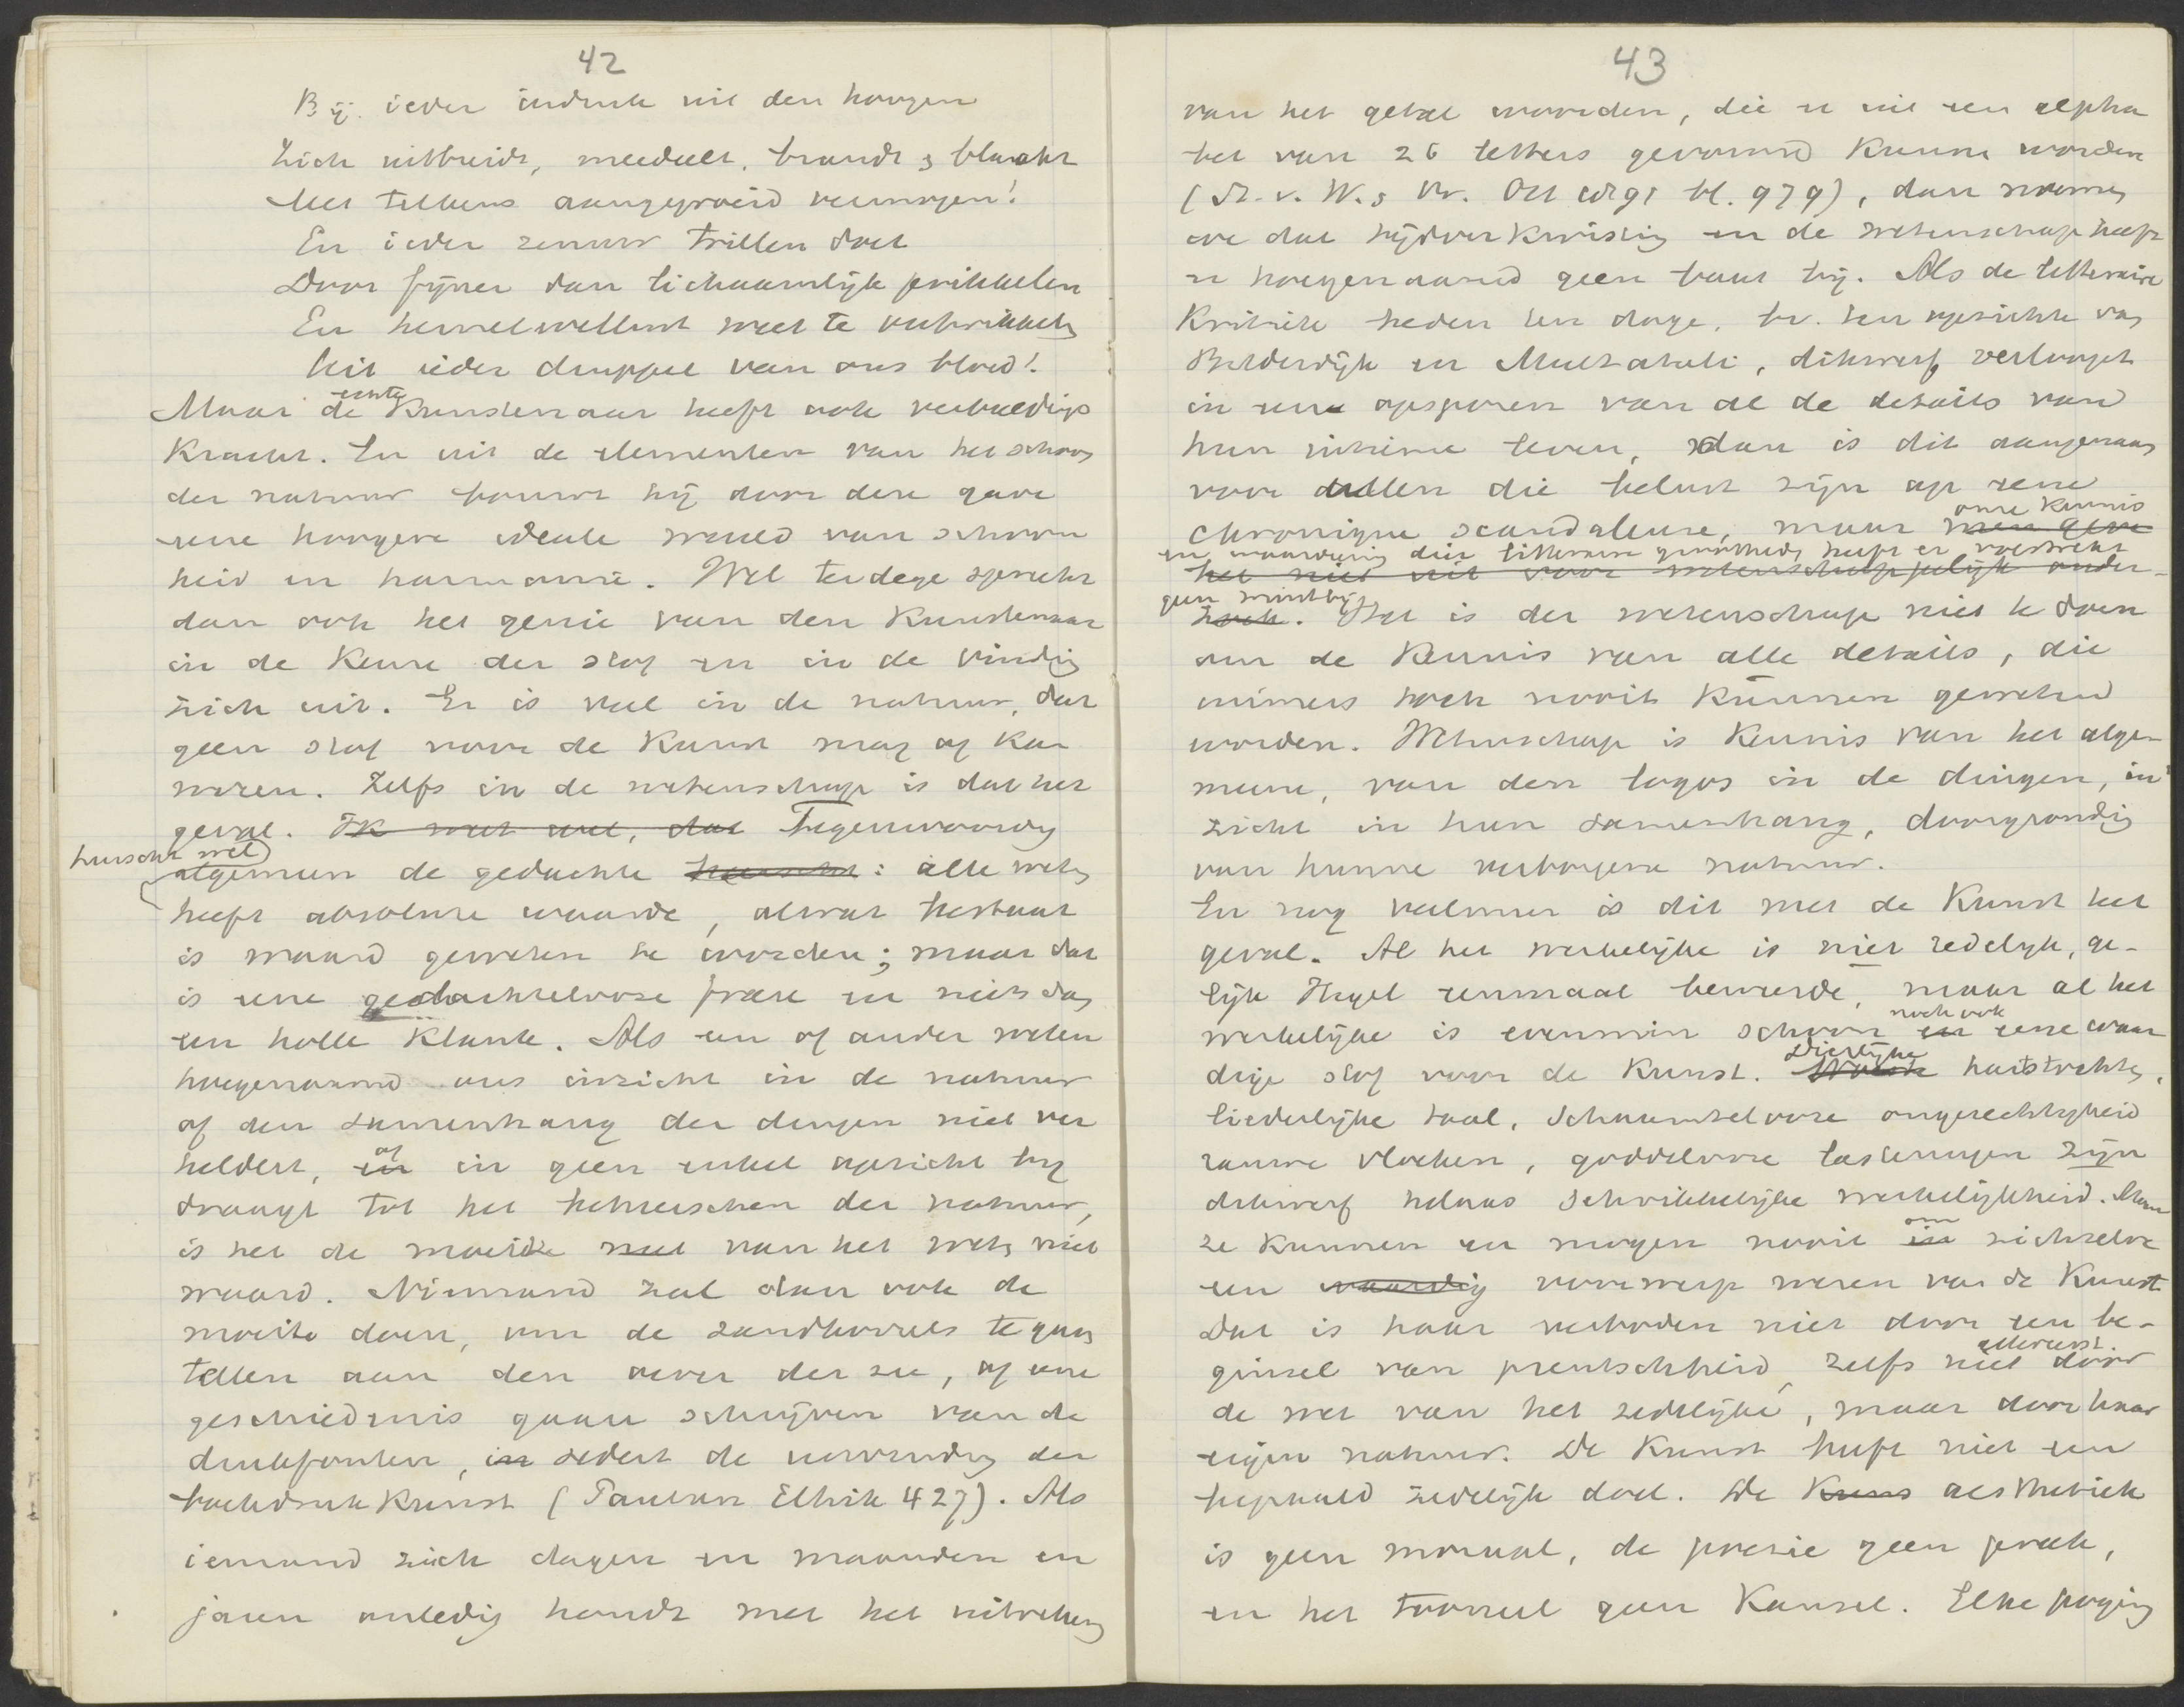 42
Bij ieder indruk uit den hoogen
Zich uitbreidt, meedeelt, brandt & blaakt
Met telkens aangegroeid vermogen!
En ieder zenuw trillen doet
Door fijner dan lichaamlijk prikkelen
En hemelwellust weet te ontwikkelen
Uit ieder druppel van ons bloed!
echte
Maar de Kunstenaar heeft ook verbeeldings
Kracht. En uit de elementen van het schoon
der natuur bouwt hij door deze gave
eene hoogere ideale wereld van schoon
heid en harmonie. Wel terdege spreekt
dan ook het genie van den Kunstenaar
in de Keuze der stof en in de vinding
zich uit. Er is veel in de natuur, dat
geen stof voor de Kunst mag of kan
wezen. Zelfs in de wetenschap is dat het
geval. Ik weet wel, dat Tegenwoordig
heerscht wel
algemeen de gedachte heerscht: alle weten
heeft absolute waarde, alwat bestaat
is waard geweten te worden; maar dat
is eene gedachtelooze frase en niets dan
een holle Klank. Als een of ander weten
hoegenaamd ons inzicht in de natuur
of den samenhang der dingen niet ver
of
heldert, en in geen enkel opzicht bij
draagt tot het beheerschen der natuur,
is het de moeite van het weten niet
waard. Niemand zal dan ook de
moeite doen, om de zandkorrels te gaan
tellen aan den oever der zee, of eene
geschiedenis gaan schrijven van de
drukfouten, in sedert de uitvinding der
boekdrukKunst (Paulsen Ethik 427). Als
iemand zich dagen en maanden en
jaren onledig houdt met het uitrekenen
43
van het getal woorden, die er uit een alpha
bet van 26 letters gevormd Kunnen worden
(St. v. W. & Vr. Oct 1891 bl. 979), dan noemen
we dat tijdverkwisting en de wetenschap heeft
er hoegenaamd geen baat bij. Als de litteraire
Kritiek heden ten dage, bv. ten opzichte van
Bilderdijk en Multatuli, dikwerf verloopt
in een opsporen van al de details van
hun intieme leven, dan is dit aangenaam
voor allen die belust zijn op eene
onze kennis
chronique scandaleuse, maar men geve
en waardeering dier litteraire grootheden heeft er volstrekt
het niet uit voor wetenschappelijk onder-
geen winst bij
zoek. Het is der wetenschap niet te doen
om de Kennis van alle details, die
immers toch nooit Kunnen geweten
worden. Wetenschap is Kennis van het alge-
meene, van den logos in de dingen, in-
zicht in hun samenhang, doorgronding
van hunne verborgene natuur.
En nog veelmeer is dit met de Kunst het
geval. Al het werkelijke is niet redelijk, ge-
lijk Hegel eenmaal beweerde, maar al het
noch ook
werkelijke is evenmin schoon en eene waar
dige stof voor de Kunst. Dierlijke
hartstochten,
liederlijke taal, Schaamtelooze ongerechtigheid
rauwe vloeken, goddelooze lasteringen zijn
dikwerf helaas schrikkelijke werkelijkheid. Maar
om
ze Kunnen en mogen nooit in zichzelve
een waardig voorwerp wezen van de Kunst
Dat is haar verboden niet door een be-
allereerst
ginsel van preutschheid, zelfs niet door
de wet van het zedelijke, maar door haar
eigen natuur. De Kunst heeft niet een
bepaald zedelijk doel. De Kuns aesthetiek
is geen moraal, de poezie geen preek,
en het tooneel geen Kansel. Elke poging